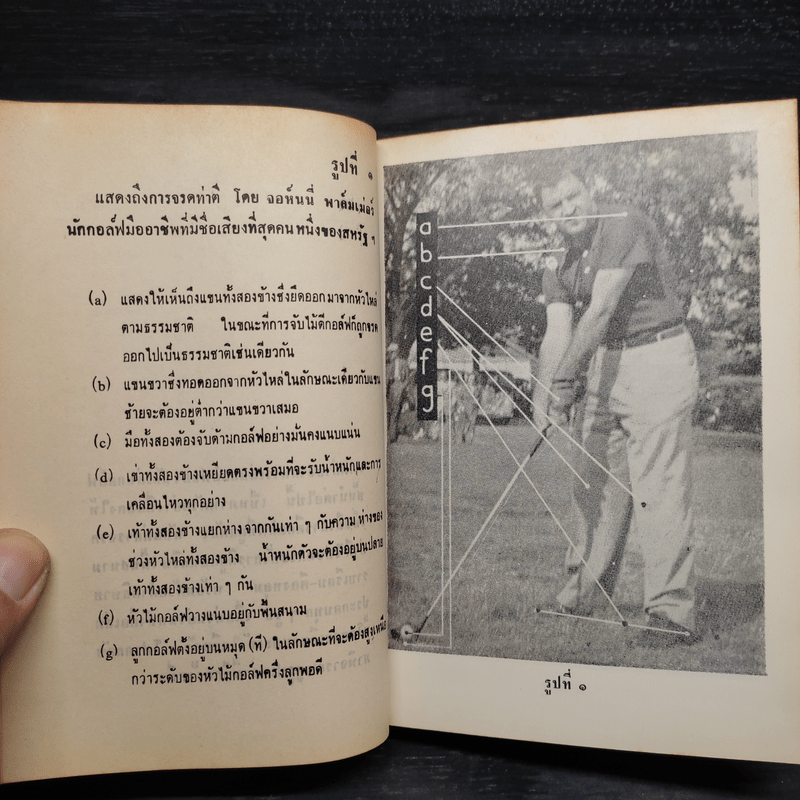 รูปที่ ๑
แสดงถึงการจรดท่าตี โดย จอห์นนี่ พาล์มเม่อร์
นักกอล์ฟมืออาชีพที่มีชื่อเสียงที่สุดคนหนึ่งของสหรัฐ ฯ
(a) แสดงให้เห็นถึงแขนทั้งสองข้างซึ่งยืดออกมาจากหัวไหล่
ตามธรรมชาติ ในขณะที่การจับไม้ตีกอล์ฟก็ถูกจรด
ออกไปเป็นธรรมชาติเช่นเดียวกัน
(b) แขนขวาซึ่งทอดออกจากหัวไหล่ในลักษณะเดียวกับแขน
ซ้ายจะต้องอยู่ต่ำกว่าแขนขวาเสมอ
(c) มือทั้งสองต้องจับด้ามกอล์ฟอย่างมั่นคงแนบแน่น
(d) เข่าทั้งสองข้างเหยียดตรงพร้อมที่จะรับน้ำหนักและการ
เคลื่อนไหวทุกอย่าง
(e) เท้าทั้งสองข้างแยกห่างจากกันเท่า ๆ กับความห่างของ
ช่วงหัวไหล่ทั้งสองข้าง น้ำหนักตัวจะต้องอยู่บนปลาย
เท้าทั้งสองข้างเท่า ๆ กัน
(f) หัวไม้กอล์ฟวางแนบอยู่กับพื้นสนาม
(g) ลูกกอล์ฟตั้งอยู่บนหมุด (ที) ในลักษณะที่จะต้องสูงเหนือ
กว่าระดับของหัวไม้กอล์ฟครึ่งลูกพอดี
a
b
c
d
e
f
g
รูปที่ ๑